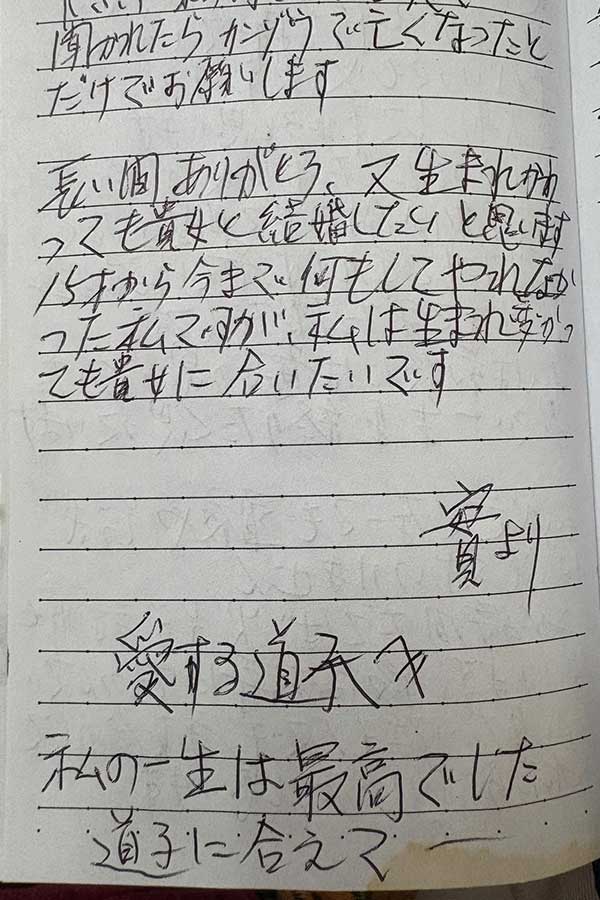 聞かれたらカンゾウで亡くなったと
だけでお願いします
長い間ありがとう、又生まれかわ
っても貴女と結婚したいと思います
15才から今まで何もしてやれなか
った私ですが、私は生まれ変かっ
ても貴女に合いたいです
實より
愛する道子へ
私の一生は最高でした
道子に合えて